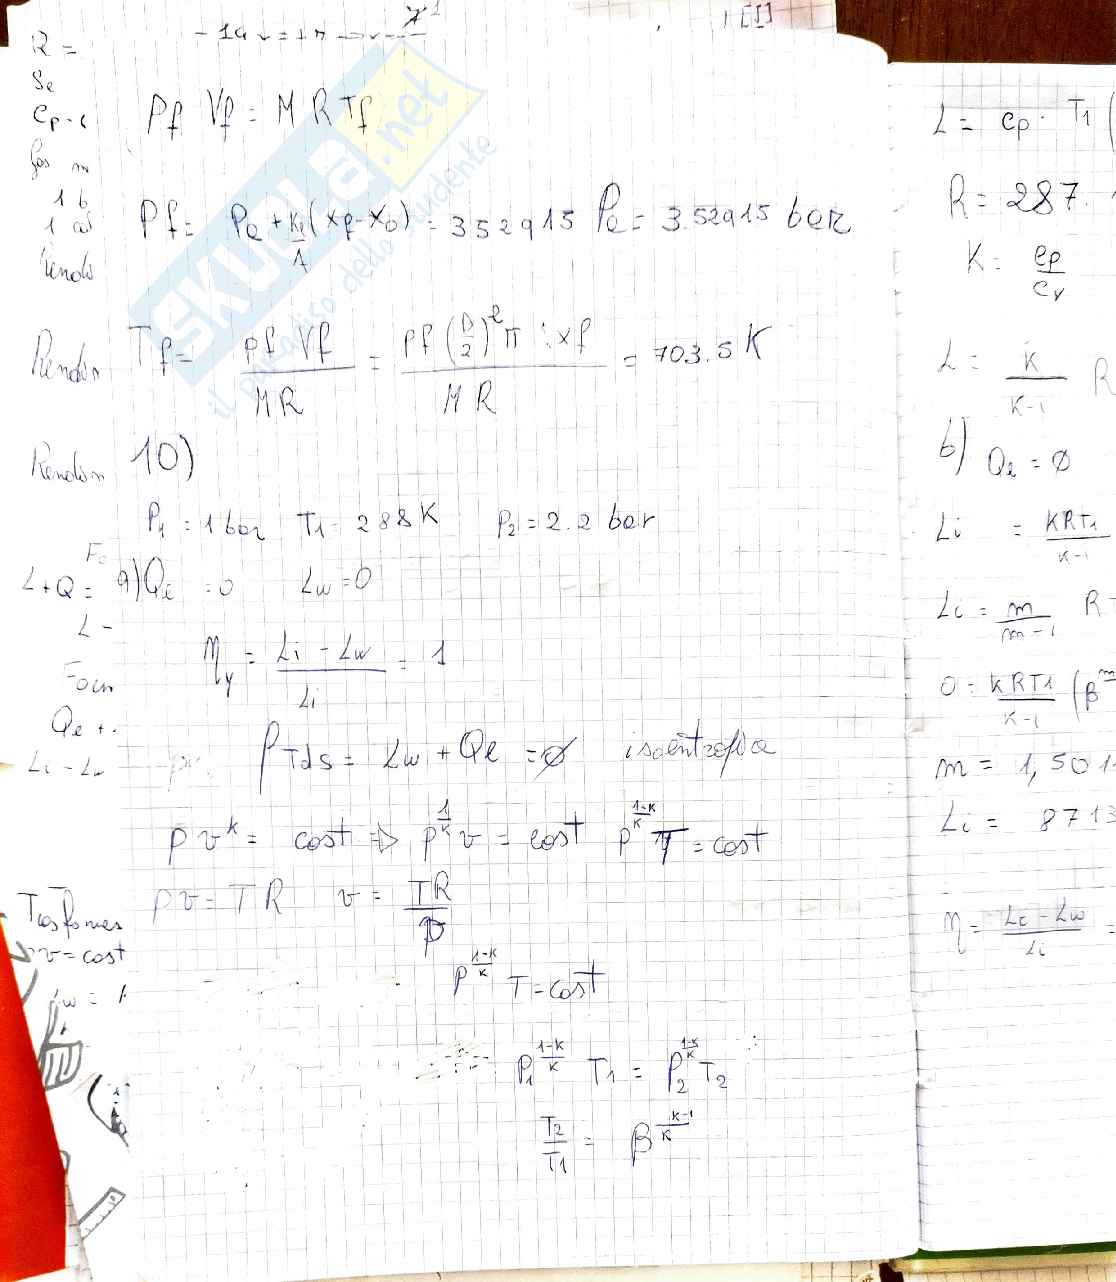 R =
Se
Cp - c
Gas m
1 b
1 at
Rendi
Rendim
Rendim
L + Q =
L -
Qe + .
Li - Lw
Trasformaz
pv = cost
Lw =
Pf Vf = M R Tf
Pf = Pe + k/A (xf - x0) = 352915 Pa = 3.52915 bar
Tf = pf Vf / MR = pf (D/2)^2 π · xf / MR = 703.5 K
10)
P1 = 1 bar T1 = 288 K P2 = 2.2 bar
a) Qe = 0 Lw = 0
ηy = Li - Lw / Li = 1
∫ Tds = Lw + Qe = ∅ isoentropica
p v^k = cost ⇒ p^(1/k) v = cost p^(1-k/k) T = cost
pv = TR v = TR / p
p^(1-k/k) T = cost
P1^(1-k/k) T1 = P2^(1-k/k) T2
T2/T1 = β^(k-1/k)
L = cp · T1 (
R = 287.
K = cp / cv
L = k / k-1 R
b) Qe = ∅
Li = KRT1 / k-1
Li = m / m-1 R T
0 = KRT1 / k-1 (β^m
m = 1,501
Li = 8713
η = Li - Lw / Li =
SKUOLA.net
il paradiso dello studente